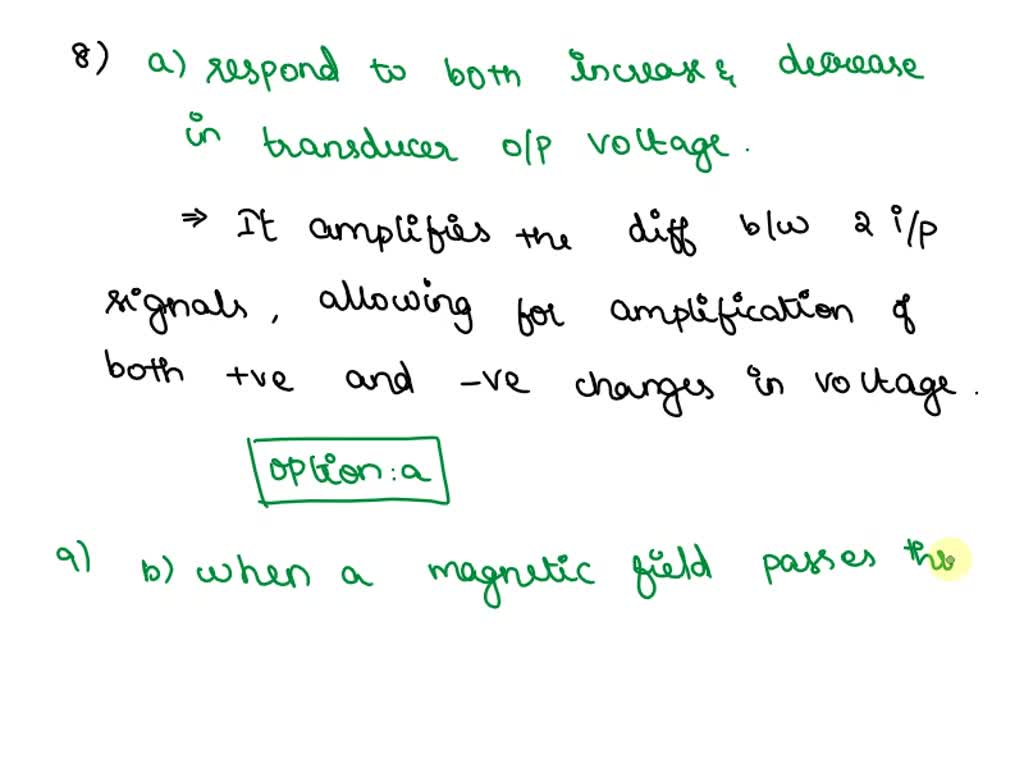 8) a) respond to both increase & decrease
in transducer o/p voltage.
⇒ It amplifies the diff b/w 2 i/p
signals, allowing for amplification of
both +ve and -ve changes in voltage.
option: a
9) b) when a magnetic field passes thro